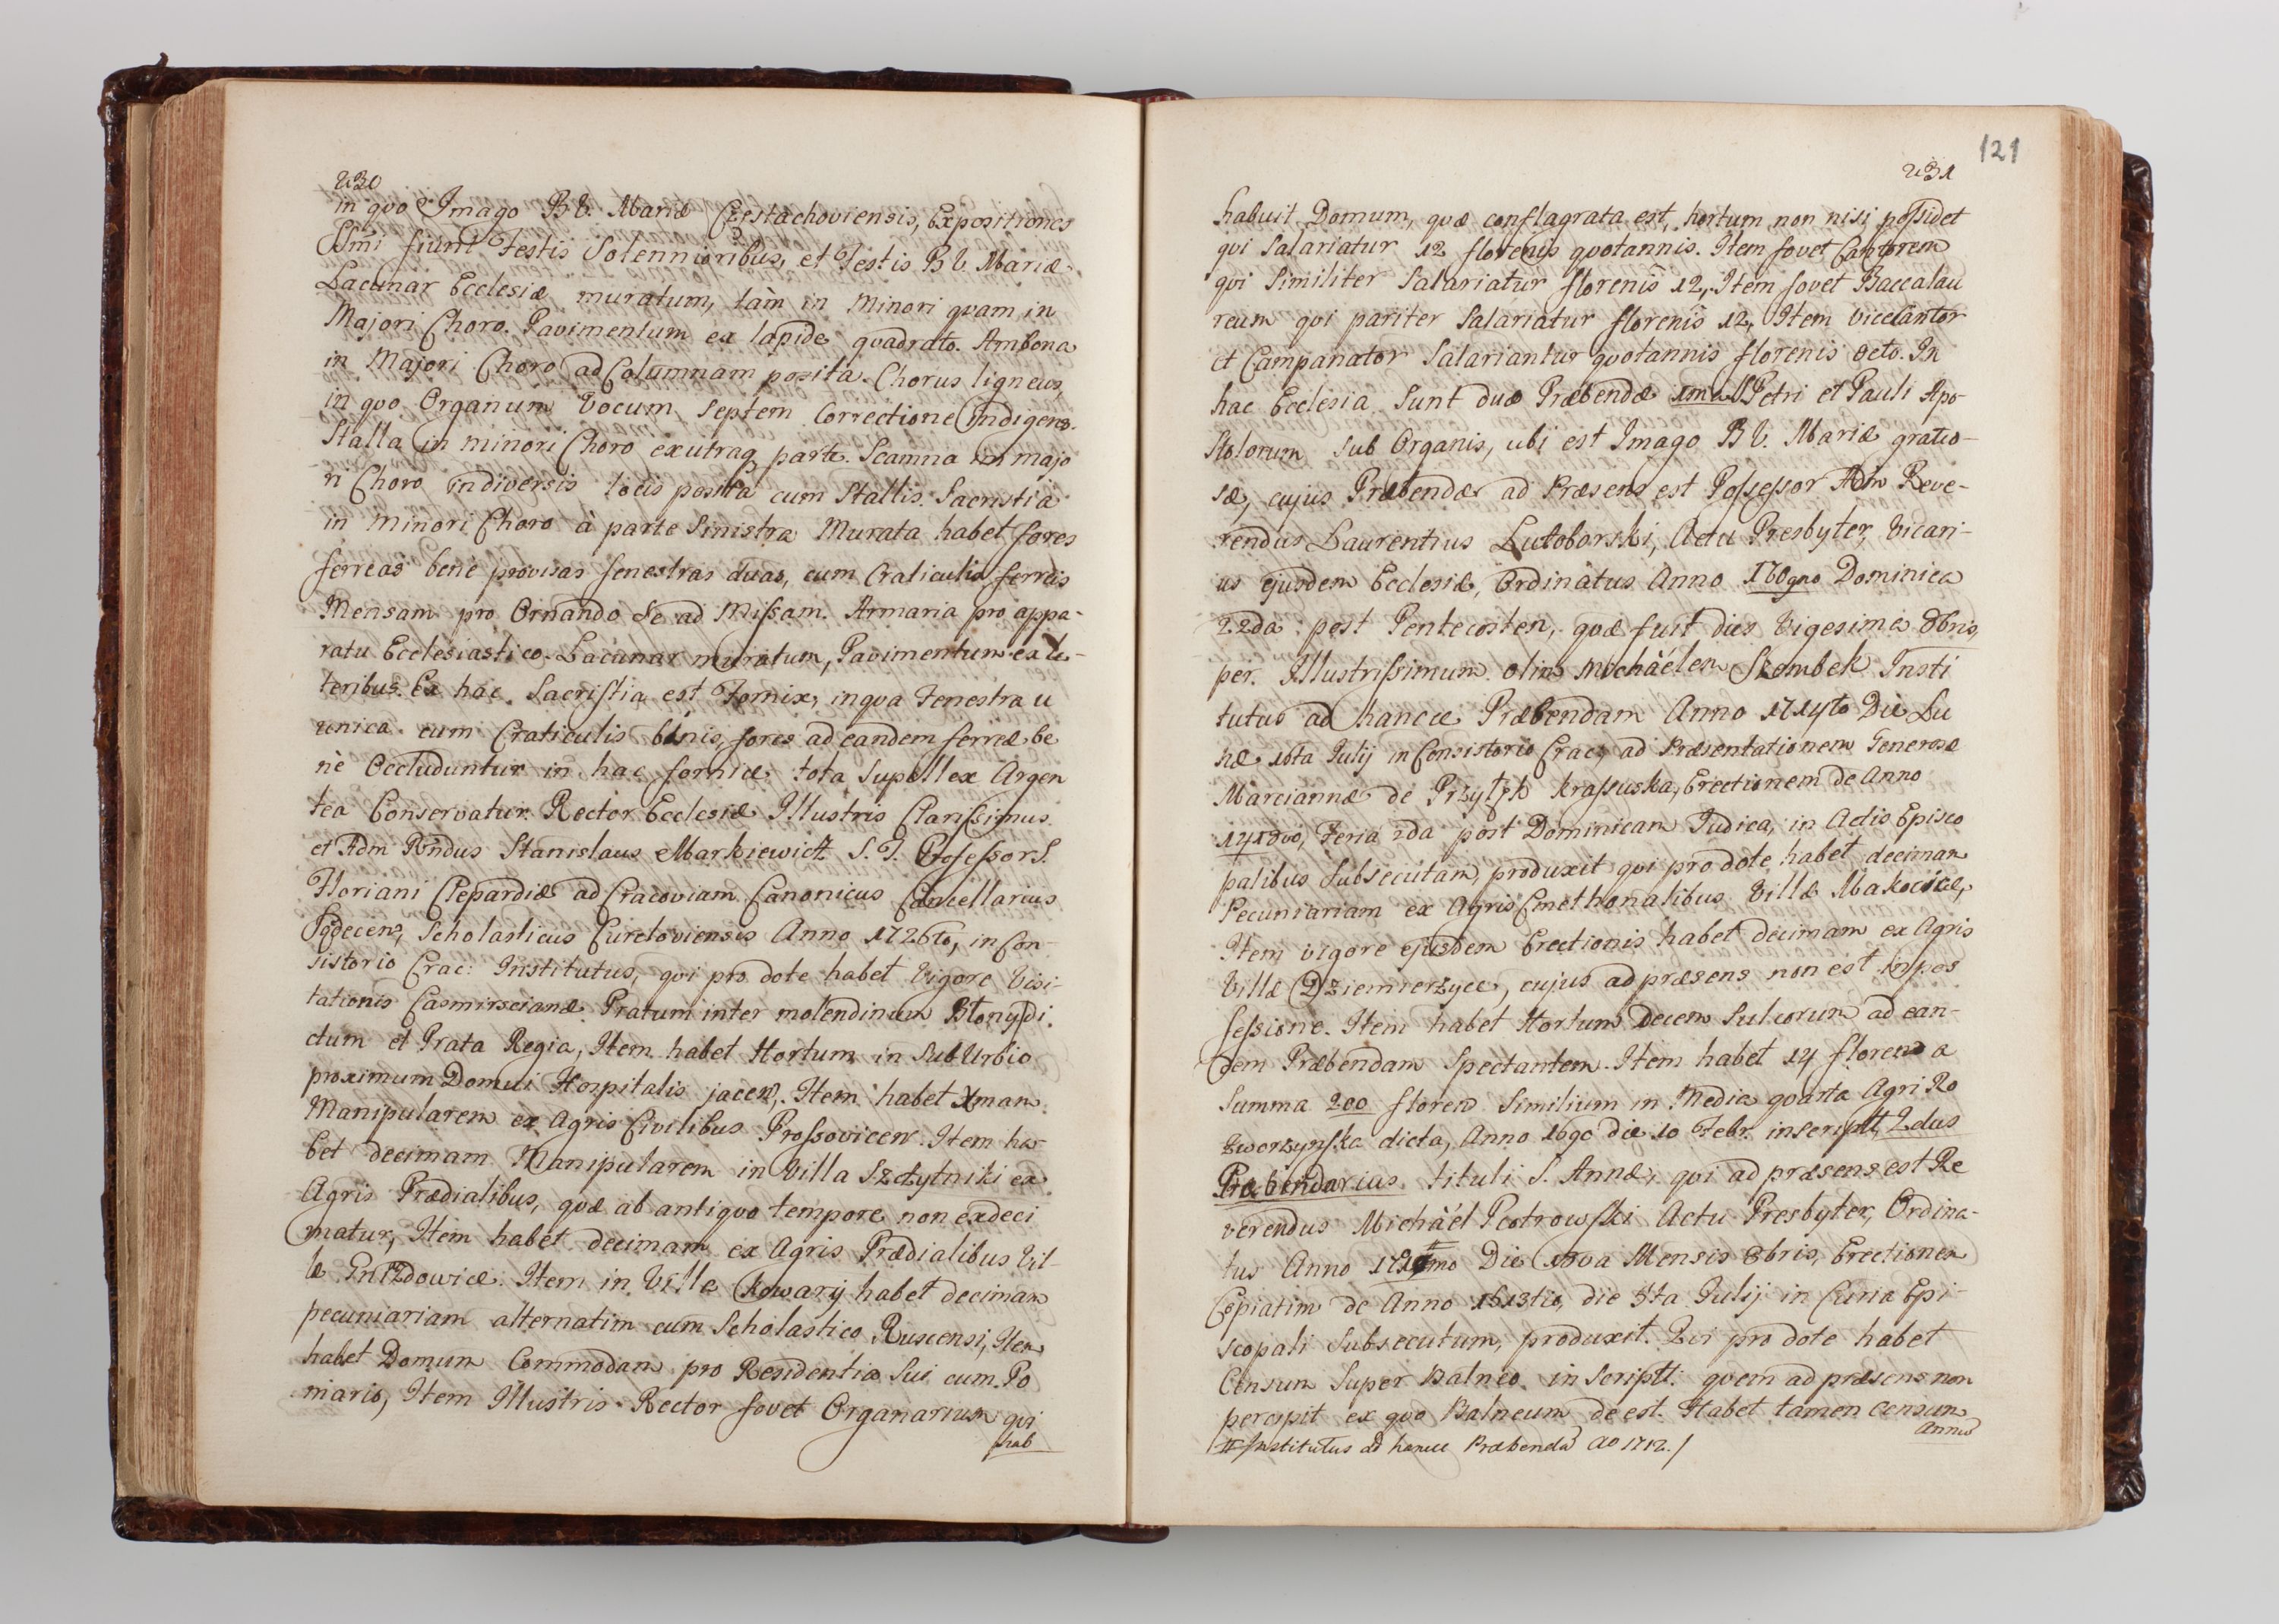 230
in quo Imago B V. Mariæ Częstachoviensis, Expositiones
SSmi fiunt Festis Solennioribus, et Festis B V. Mariæ
Lacunar Ecclesiæ muratum, tàm in Minori quam in
Majori Choro. Pavimentum ex lapide quadrato. Ambona
in Majori Choro ad Columnam posita. Chorus ligneus,
in quo Organum Vocum Septem Correctione indigens.
Stalla in minori Choro ex utraq parte. Scamna in majo
ri Choro in diversis locis posita cum Stallis. Sacristia
in Minori Choro à parte Sinistra Murata habet fores
ferreas bene provisas fenestras duas, cum Craticulis ferreis
Mensam pro Ornando Se ad Missam. Armaria pro appa-
ratu Ecclesiastico. Lacunar muratum, Pavimentum ex la-
teribus. Ex hac Sacristia est Fornix, in qua Fenestra u
unica cum Craticulis binis, fores ad eandem ferreæ be
nè Occluduntur in hac fornice tota Supellex Argen
tea Conservatur. Rector Ecclesiæ Illustris Clarissimus
et Adm Rñdus Stanislaus Markiewicz S. T. Professor S.
Floriani Clepardiæ ad Cracoviam Canonicus Cancellarius
Scholasticus Cureloviensis Anno 1726to, in Con-
sistorio Crac: Institutus, qui pro dote habet Vigore Visi-
tationis Casmirscianæ Pratum inter molendinum Błony di-
ctum et Prata Regia, Item habet Hortum in SubUrbio
proximum Domui Hospitalis jacen, Item habet Xmam
Manipularem ex Agris Civilibus Prossovicen. Item ha-
bet decimam Manipularem in Villa Szczytniki ex
Agris Prædialibus, quæ ab antiquo tempore non exdeci
matur, Item habet decimam ex Agris Prædialibus Vil-
læ Item in Villa Kowary habet decimam
pecuniariam alternatim cum Scholastico Ruscensi, Item
habet Domum Commodam pro Residentia Sui cum Po
mario, Item Illustris Rector fovet Organarium qui
hab
121
231
habuit Domum, quæ conflagrata est, hortum non nisi possidet
qui Salariatur 12 florenis quotannis. Item fovet Cantorem
qui Similiter Salariatur florenis 12, Item fovet Baccalau
reum qui pariter Salariatur florenis 12, Item Vicecantor
et Campanator Salariantur quotannis florenis octo. In
hac Ecclesia Sunt duæ Præbendæ 1ma SS Petri et Pauli Apo-
Stolorum Sub Organis, ubi est Imago B V. Mariæ gratio-
sæ, cujus Præbendæ ad Præsens est Possessor Adm Reve-
rendus Laurentius Lutoborski, Actu Presbyter, Vicari-
us ejusdem Ecclesiæ, Ordinatus Anno Dominica
22da post Pentecosten, quæ fuit dies Vigesima 8bris,
per Illustrissimum olim Michàélem Szembek Insti
tutus ad hancce Præbendam Anno 1714to Die Lu
næ 16ta Julij in Consistorio Crac, ad Præsentationem Generosæ
Mariannæ de Przyłęk Krassuska, Erectionem de Anno
Feria 2da post Dominicam Judica, in Actis Episco
palibus Subsecutam, produxit qui pro dote habet decimam
Pecuniariam ex Agris Cmethonalibus Villæ Makocice,
Item vigore ejusdem Erectionis habet decimam ex Agris
Villæ Dziemierzyce, cujus ad præsens non est in pos
sessione. Item habet Hortum Decem Sulcorum ad ean-
dem Præbendam Spectantem. Item habet 14 florenos a
Summa 200 floren Similium in Media quarta Agri Ro
zworzynska dicta, Anno 1690 die 10 Febr. inscript, 2dus
Præbendarius tituli S. Annæ, qui ad præsens est Re
verendus Michàél Piotrowski Actu Presbyter, Ordina-
tus Anno Die Mensis 8bris, Erectionem
Copiatim de Anno 1613tio, die 5ta Julij in Curia Epi-
scopali Subsecutum, produxit. Qui pro dote habet
Censum Super Balneo inscript: quem ad præsens non
percipit ex quo Balneum de est. Habet tamen censum
Annuo
# Institutus ad hancce Præbendã Ao 1712./